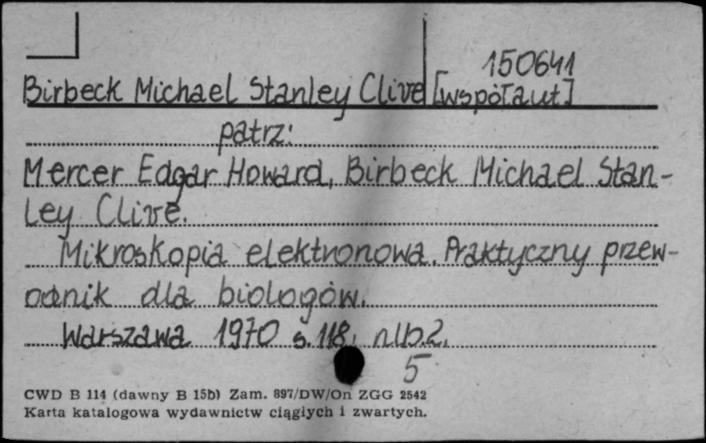 150641
Birbeck Michael Stanley Clive [współaut]
patrz:
Mercer Edgar Howard, Birbeck Michael Stan-
ley Clive.
Mikroskopia elektronowa. Praktyczny przew-
odnik dla biologów.
Warszawa 1970 s. 118, nlb.2.
5
CWD B 114 (dawny B 15b) Zam. 897/DW/On ZGG 2542
Karta katalogowa wydawnictw ciągłych i zwartych.